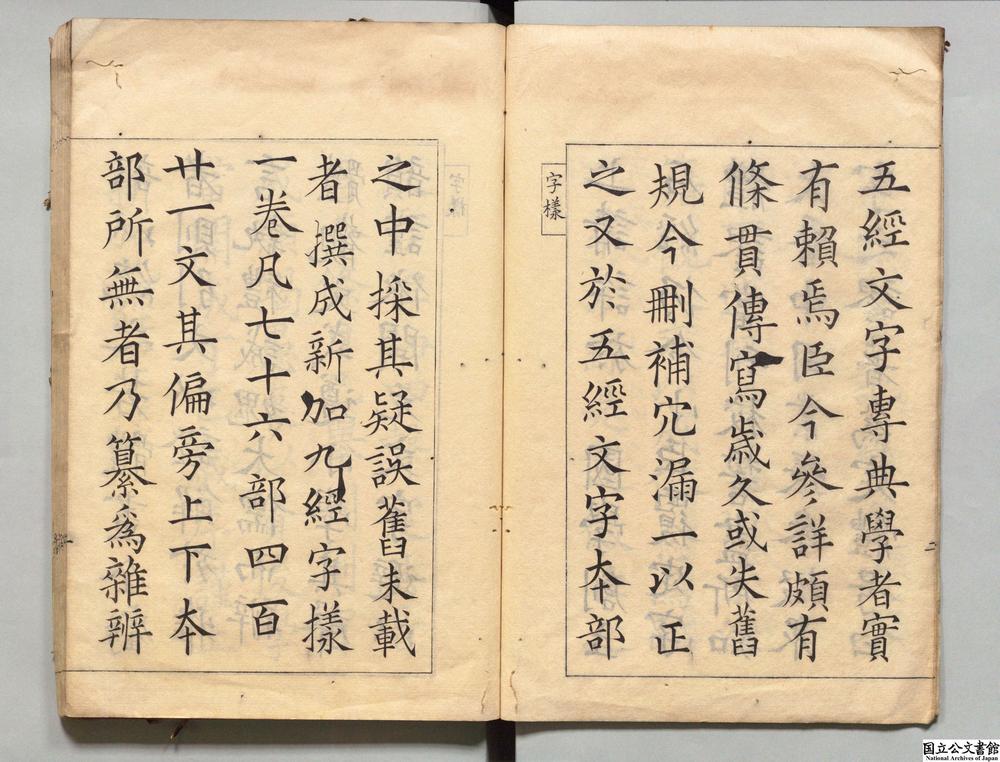 五經文字專典學者實
有賴焉臣今參詳頗有
條貫傳寫歲久或失舊
規今刪補冗漏一以正
之又於五經文字本部
字樣
之中採其疑誤舊未載
者撰成新加九經字㨾
一卷凡七十六部四百
廿一文其偏旁上下本
部所無者乃纂為雜辨
国立公文書館
National Archives of Japan